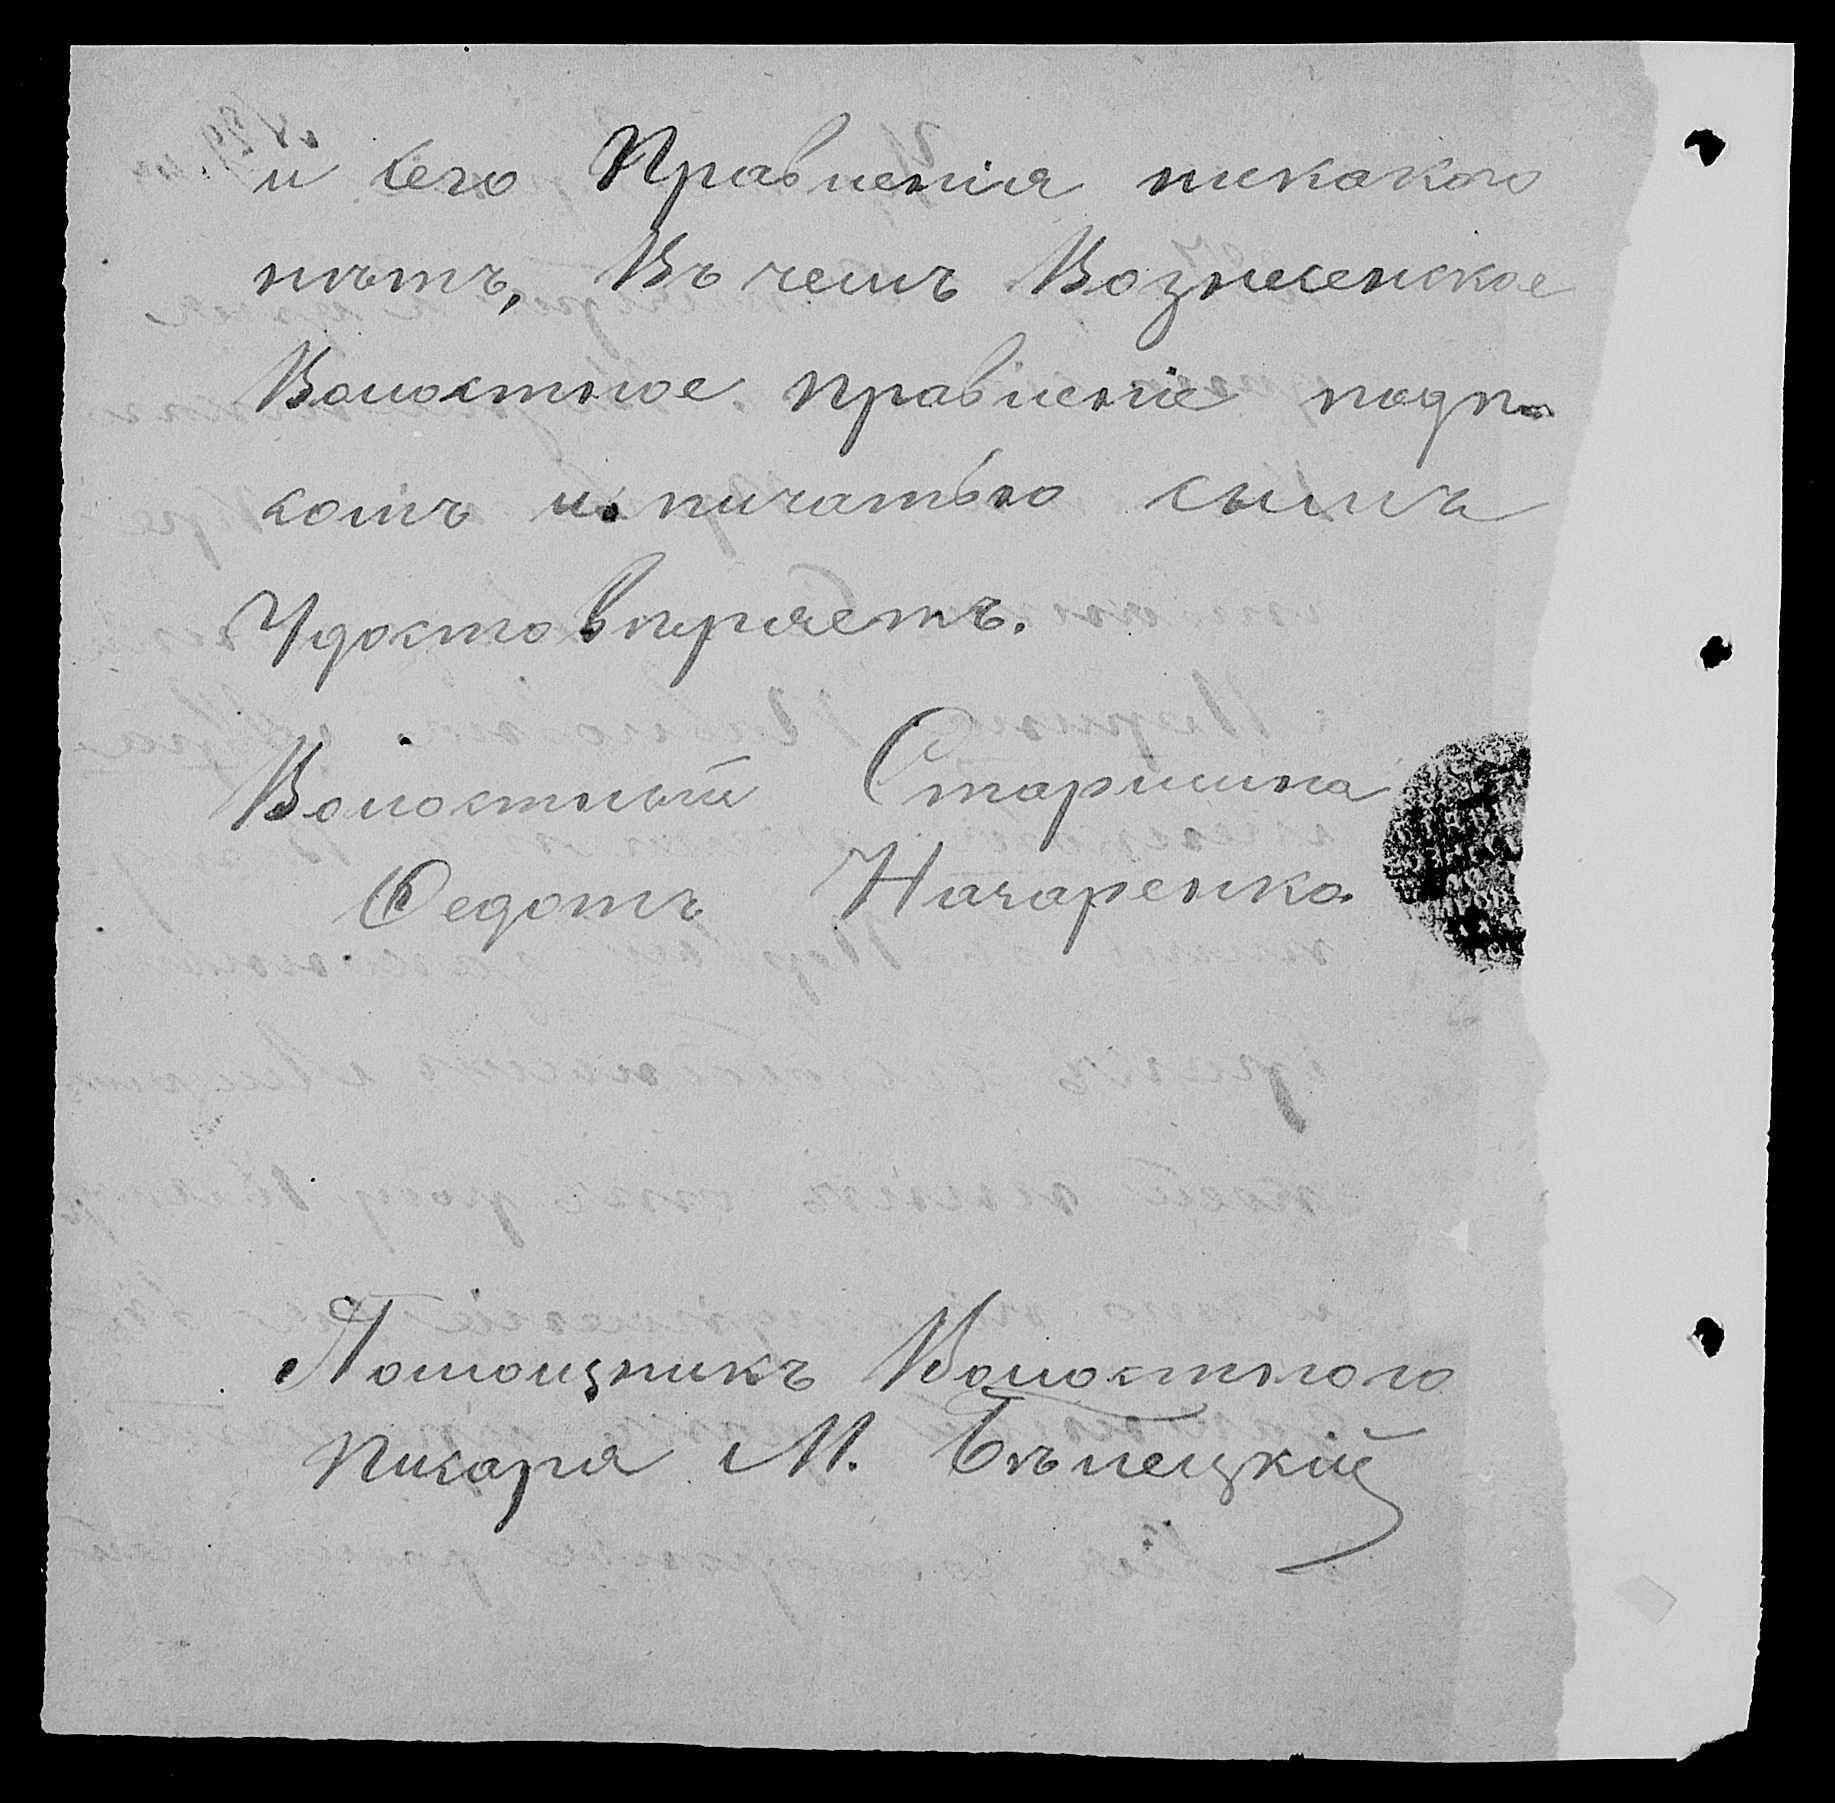 и сего Правленія никакого
нѣтъ, Въ чемъ Вознесенское
Волостное правленіе подпи
сомъ и пичатью симъ
Удостовѣряетъ.
Волостный Старшина
Федотъ Начаренко
Помощникъ Волостного
писаря М. Бѣлецкій